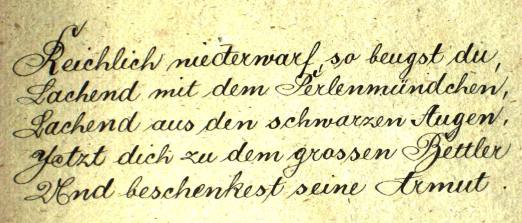 Reichlich niederwarf, so beugst du,
Lachend mit dem Perlenmündchen,
Lachend aus den schwarzen Augen,
Jetzt dich zu dem grossen Bettler
Und beschenkest seine Armut.